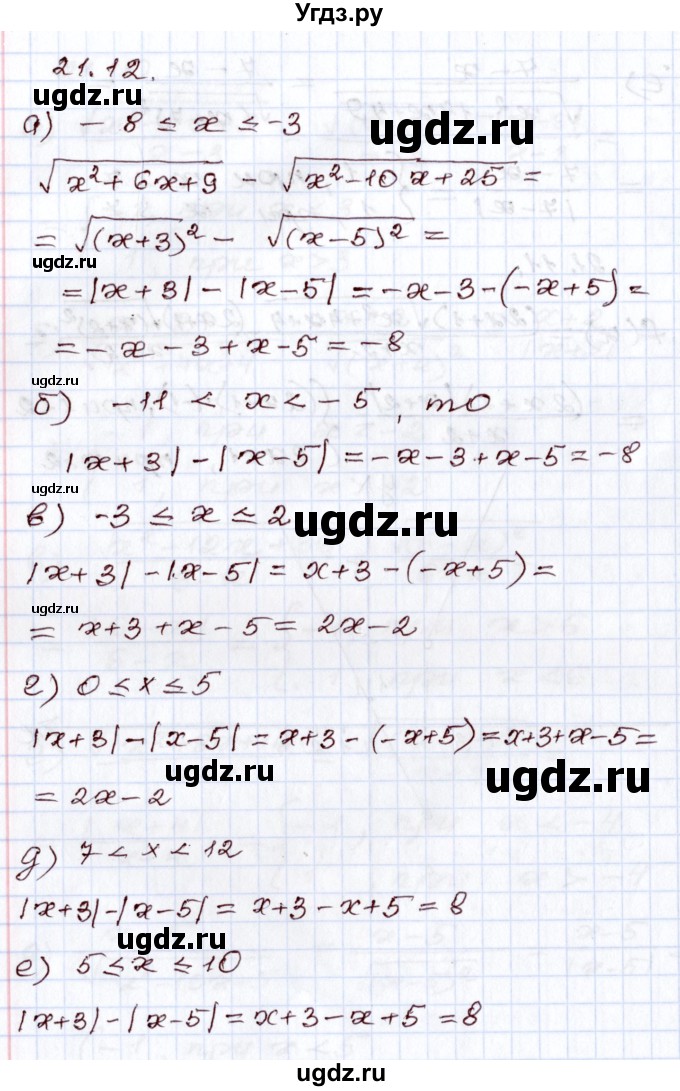 Угдз.ру
21.12.
ugdz.ru
а) - 8 ≤ x ≤ -3 ugdz.ru
√(x²+6x+9) - √(x²-10x+25) =
= √(x+3)² - √(x-5)² =
ugdz.ru
= |x+3| - |x-5| = -x-3-(-x+5) =
= -x-3+x-5 = -8
ugdz.ru
б) -11 < x < -5, то
|x+3|-|x-5| = -x-3+x-5 = -8
ugdz.ru
в) -3 ≤ x ≤ 2 ugdz.ru
|x+3|-|x-5| = x+3-(-x+5) =
ugdz.ru
= x+3+x-5 = 2x-2
г) 0 ≤ x ≤ 5
|x+3|-|x-5| = x+3-(-x+5) = x+3+x-5 =
ugdz.ru ugdz.ru
= 2x-2
д) 7 < x < 12
|x+3|-|x-5| = x+3-x+5 = 8
ugdz.ru
е) 5 ≤ x ≤ 10
|x+3|-|x-5| = x+3-x+5 = 8
ugdz.ru